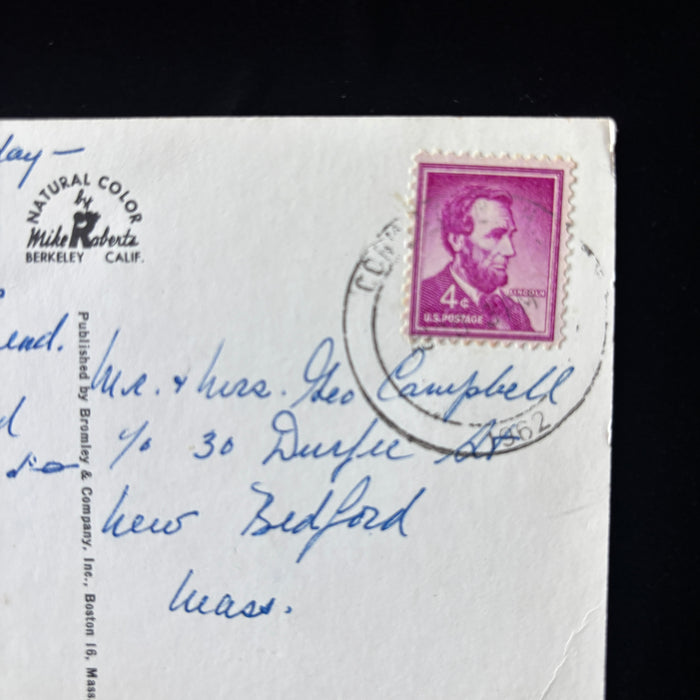 NATURAL COLOR
by
Mike Roberts
BERKELEY CALIF.
4¢
LINCOLN
U.S. POSTAGE
1962
end.
Mr. & Mrs. Geo Campbell
% 30 Durfee St
New Bedford
Mass.
Published by Bromley & Company, Inc., Boston 16, Mass